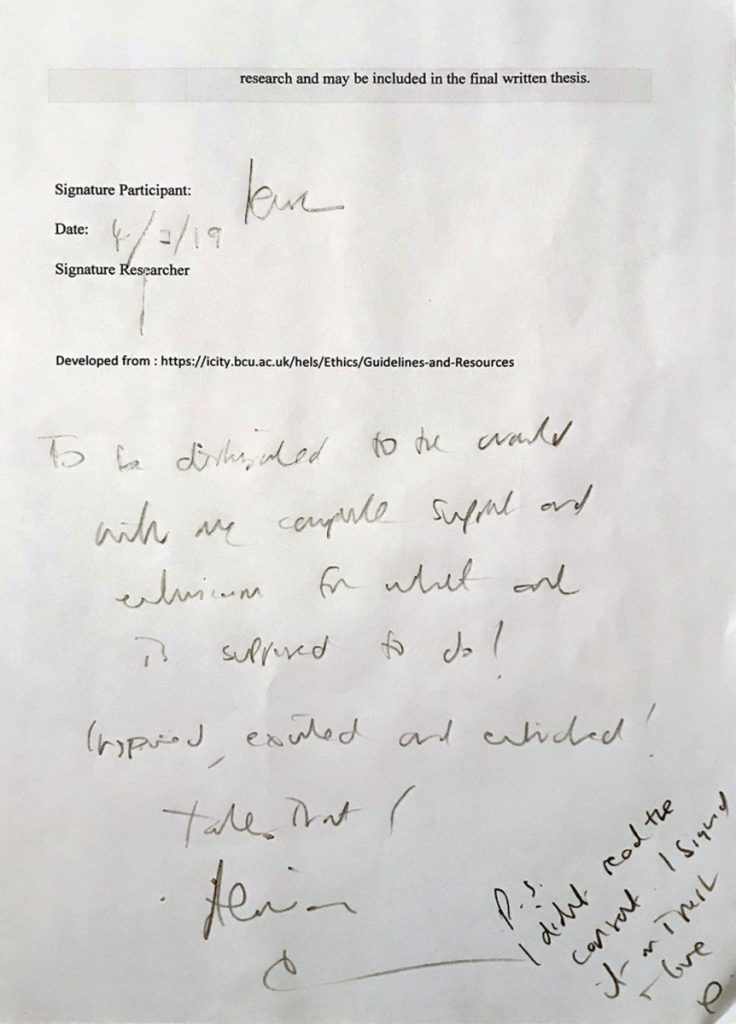 research and may be included in the final written thesis.
Signature Participant:
Date: 4/2/19
Signature Researcher
Developed from : https://icity.bcu.ac.uk/hels/Ethics/Guidelines-and-Resources
To be distributed to the world
with my complete support and
enthusiasm for what art
is supposed to do!
Inspired, excited and enriched!
Take that!
P.S.
I didnt read the
consent I signed
it in Trust
+ love